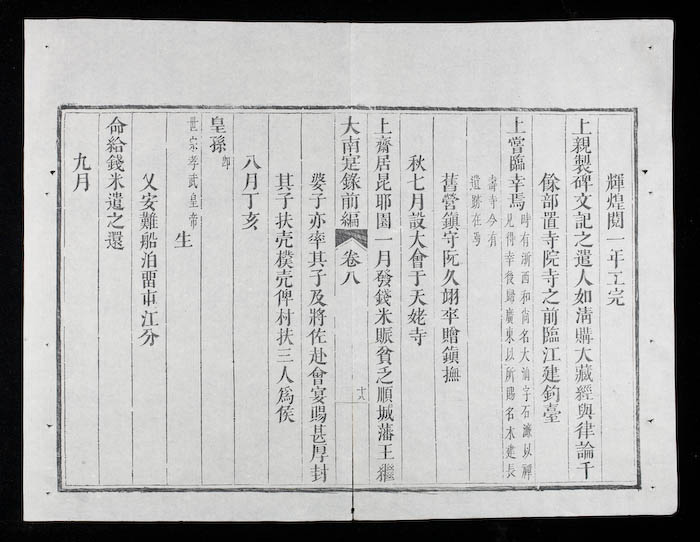 輝煌閱一年工完
上親製碑文記之遣人如清購大藏經與律論千
餘部置寺院寺之前臨江建釣臺
上嘗臨幸焉時有浙西和尚名大汕字石濂以禪
見得幸後歸廣東以所賜名木建長
壽寺今有
遺跡在焉
舊營鎮守阮久翊卒贈鎮撫
秋七月設大會于天姥寺
上齋居昆耶園一月發錢米賑貧乏順城藩王繼
大南寔錄前編 卷八 十八
婆子亦率其子及將佐赴會宴賜甚厚封
其子扶壳樸壳俾村扶三人為侯
八月丁亥
皇孫即
世宗孝武皇帝生
又安難船泊畱市江分
命給錢米遣之還
九月